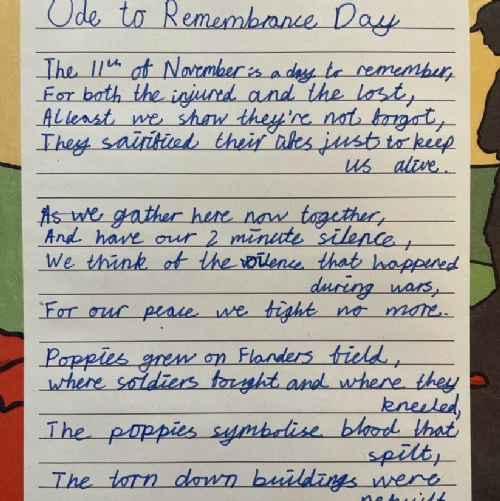 Ode to Remembrance Day
The 11th of November is a day to remember,
For both the injured and the lost,
Atleast we show they're not forgot,
They sairificed their lives just to keep
us alive.
As we gather here now together,
And have our 2 minute silence,
We think of the violence that happened
during wars,
For our peace we fight no more.
Poppies grew on Flanders field,
where soldiers fought and where they
kneeled,
The poppies symbolise blood that
spilt,
The torn down buildings were
rebuilt